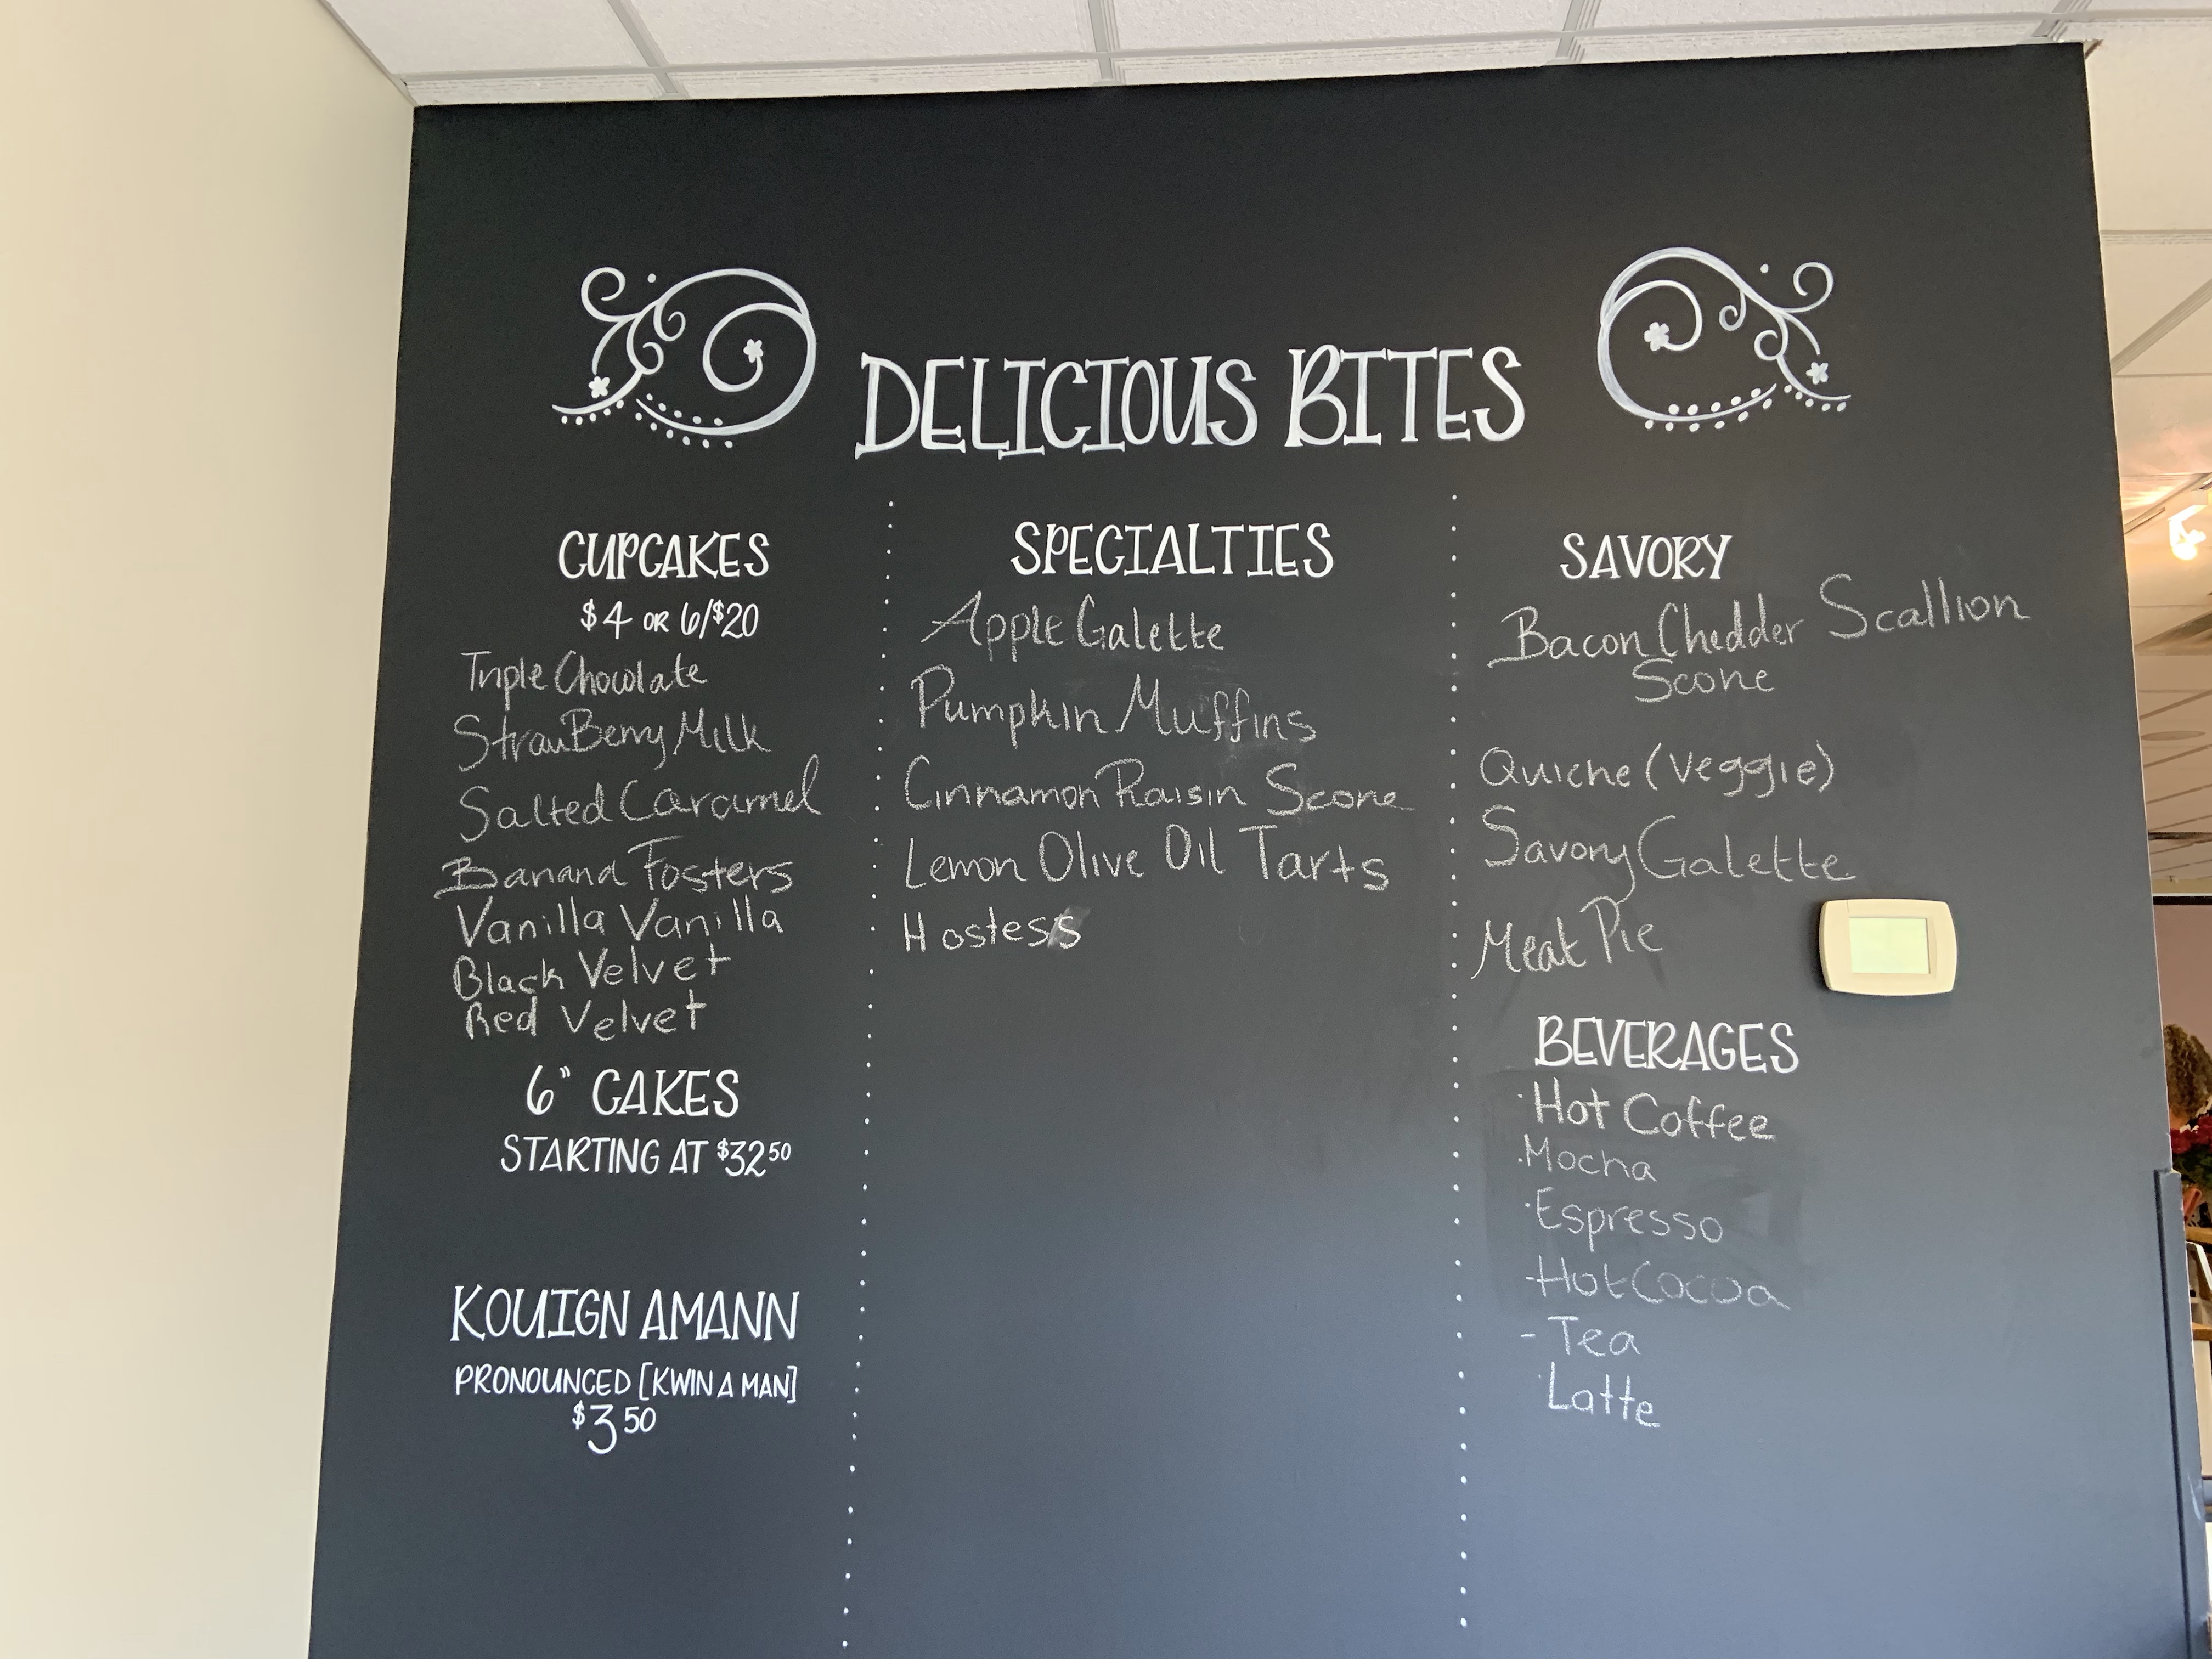 DELICIOUS BITES
CUPCAKES
$4 OR 6/$20
Triple Chocolate
StrawBerry Milk
Salted Caramel
Banana Fosters
Vanilla Vanilla
Black Velvet
Red Velvet
6" CAKES
STARTING AT $32 50
KOUIGN AMANN
PRONOUNCED [KWIN A MAN]
$3 50
SPECIALTIES
Apple Galette
Pumpkin Muffins
Cinnamon Raisin Scone
Lemon Olive Oil Tarts
Hostess
SAVORY
Bacon Chedder Scallion
Scone
Quiche (Veggie)
Savory Galette
Meat Pie
BEVERAGES
·Hot Coffee
·Mocha
·Espresso
-Hot Cocoa
- Tea
·Latte